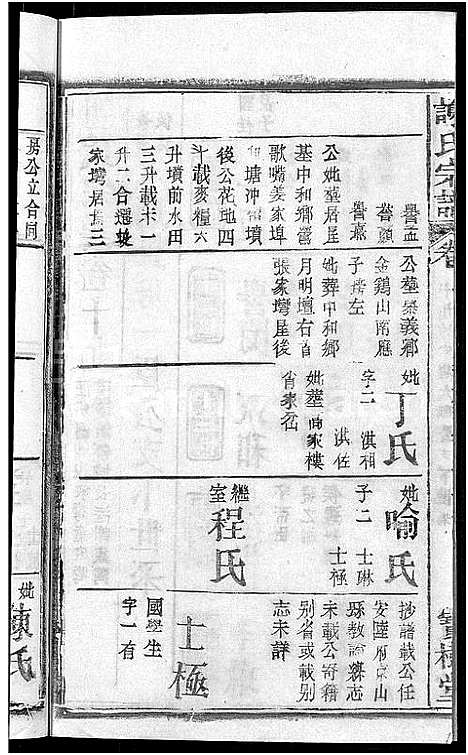 謝氏宗譜
卷
寶樹堂
譽孟
譽顯
譽嘉
公妣塋居屋
基中和鄉營
歌嘴姜家埠
和塘沖祖墳
後公花地四
斗載麥糧六
三升載未一
升墳前水田
升二合遷發
家塆居焦三
公塋崇義鄉
金鷄山南應
子塝左
妣葬中和鄉
月明壇右首
張家塆屋後
妣丁氏
字二 淇相
淇佐
妣塋商家樓
肖家岔
妣喻氏
子二 士琳
士極
繼室程氏
抄譜載公任
安陸府京山
縣教諭縣志
未載公奇籍
别省或載
志未詳
士極
國學生
字一有
房公立合同
妣陳氏